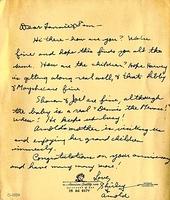 Dear Fannie & Sam -
Hi there - how are you? We're
fine and hope this finds you all the
same. How are the children? Hope Harvey
is getting along real well, & that Libby
& Marsha are fine
Sharon & Joel are fine, although
the baby is a real "Dennis the Menace"
when! He keeps us busy!
Arnold's mother is visiting us
and enjoying her grand children
immensely.
Congratulations on your anniversary
and have many more!
Love,
Shirley
Arnold